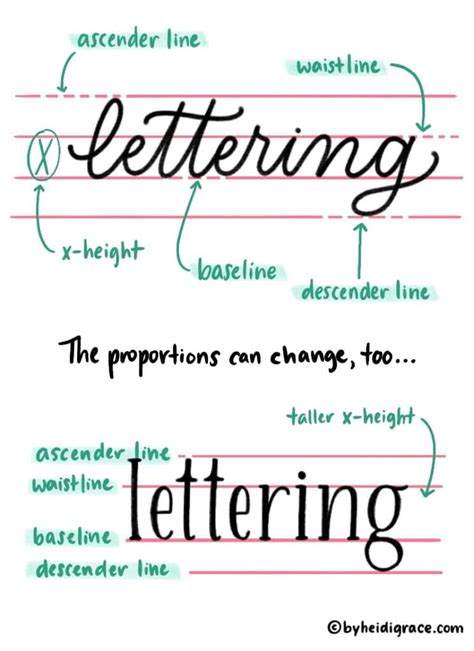 ascender line
waistline
X
lettering
x-height
baseline
descender line
The proportions can change, too...
taller x-height
ascender line
waistline
lettering
baseline
descender line
©byheidigrace.com